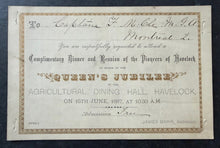 To Captain F. M. Cole M.A.
Montreal
You are respectfully requested to attend a
Complimentary Dinner and Reunion of the Pioneers of Havelock
QUEEN'S JUBILEE
AGRICULTURAL DINING HALL, HAVELOCK,
ON 15TH JUNE, 1897, AT 10.30 AM
Admission Free
JAMES